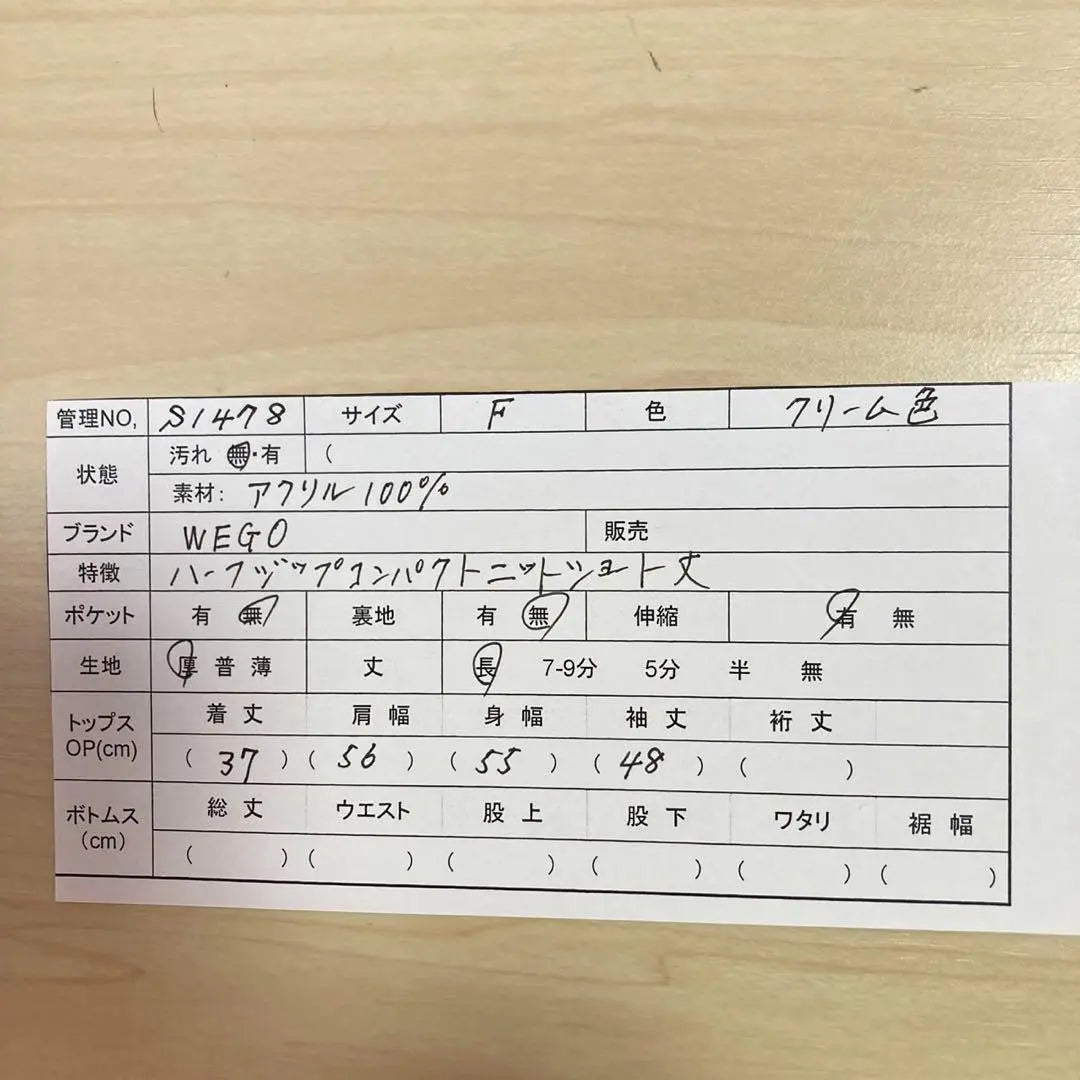 管理NO, S1478 サイズ F 色 クリーム色
状態 汚れ 無・有 (
素材: アクリル100%
ブランド WEGO 販売
特徴 ハーフジップコンパクトニットショート丈
ポケット 有 無 裏地 有 無 伸縮 有 無
生地 厚 普 薄 丈 長 7-9分 5分 半 無
トップス OP(cm) 着丈 肩幅 身幅 袖丈 裄丈
(37) (56) (55) (48) ( )
ボトムス (cm) 総丈 ウエスト 股上 股下 ワタリ 裾幅
( ) ( ) ( ) ( ) ( ) ( )